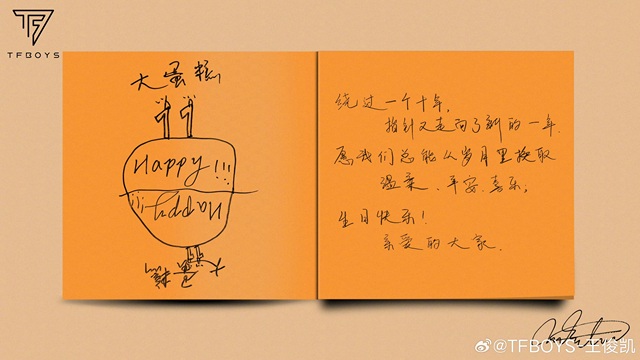 TFBOYS
大蛋糕
Happy!!!
Happy!!!
大蛋糕
绕过一个十年，
指针又走向了新的一年.
愿我们总能从岁月里取
温柔、平安、喜乐。
生日快乐！
亲爱的大家.
@TFBOYS-王俊凯